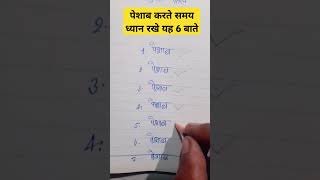 पेशाब करते समय
ध्यान रखे यह 6 बाते
1. पेशाब
2. पेशाब
3. पेशाब
4. पेशाब
5. पेशाब
6. पेशाब
पेशाब
2.
3.
4.